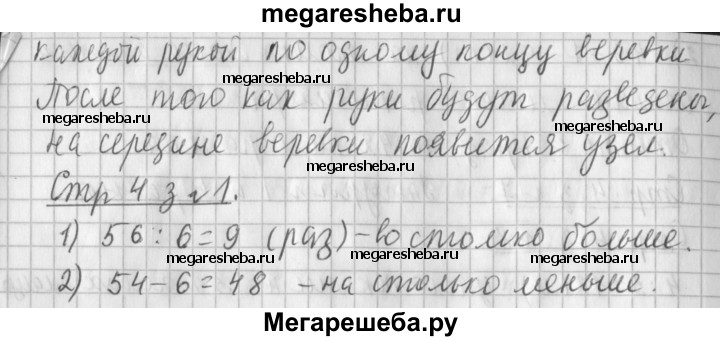 megaresheba.ru
каждой рукой по одному концу веревки
megaresheba.ru megaresheba.ru
После того как руки будут разведены,
megaresheba.ru megaresheba.ru
на середине веревки появится узел.
megaresheba.ru megaresheba.ru
Стр 4 з №1.
1) 56 : 6 = 9 (раз) – во столько больше.
megaresheba.ru megaresheba.ru
2) 54 – 6 = 48 – на столько меньше.
megaresheba.ru megaresheba.ru
Мегарешеба.ру